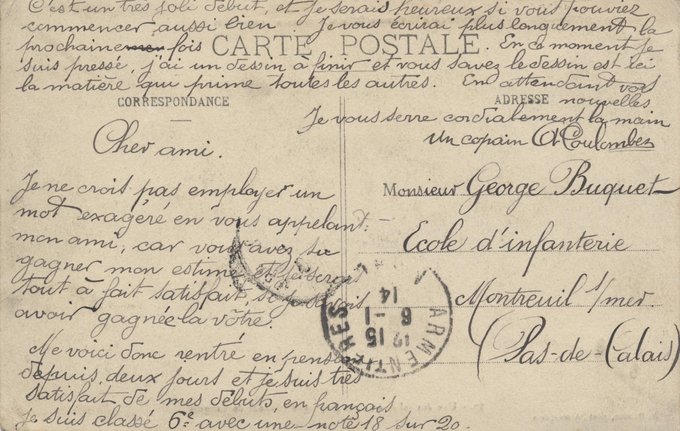 C'est un très joli début, et je serais heureux si vous pouviez
commencer aussi bien Je vous écrirai plus longuement la
prochaine fois
CARTE POSTALE.
En ce moment je
suis pressé, j'ai un dessin à finir et vous savez le dessin est ici
la matière qui prime toutes les autres. En attendant vos
nouvelles.
CORRESPONDANCE
ADRESSE
Je vous serre cordialement la main
Un copain A Coulombez
Cher ami.
Je ne crois pas employer un
mot exagéré en vous appelant:
mon ami, car vous avez su
gagner mon estime et je serais
tout à fait satisfait, si je savais
avoir gagnée la vôtre.
Me voici donc rentré en pension
depuis deux jours et je suis très
satisfait de mes débuts, en français
je suis classé 6e avec une note 18 sur 20.
Monsieur George Buquet
Ecole d'infanterie
Montreuil s/mer.
(Pas-de-Calais)
ARMENTIERES
15
6-1
14